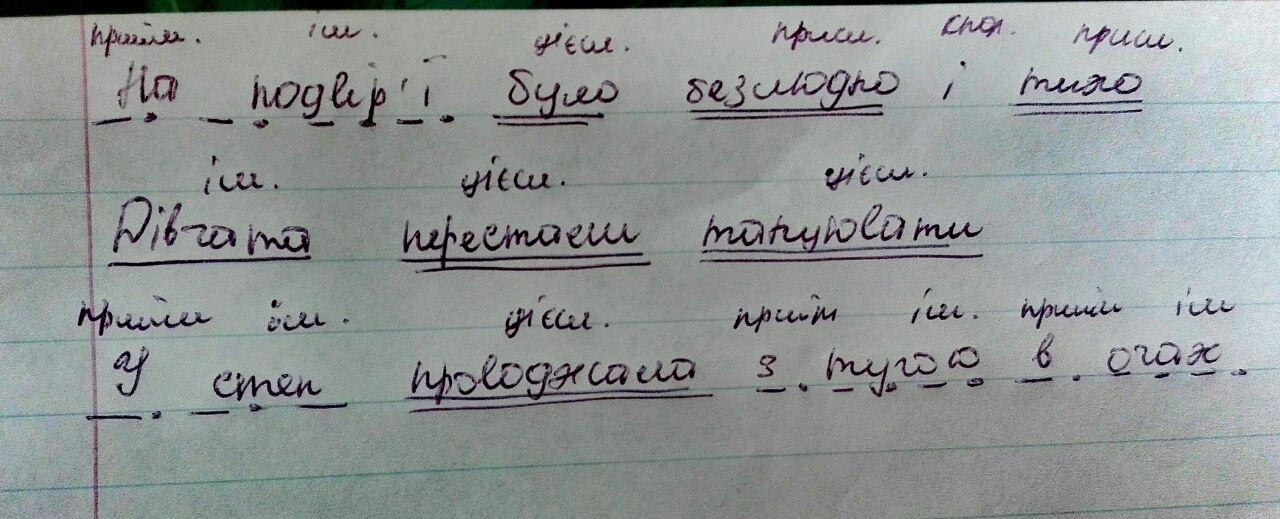 прийм. ім. дієсл. присл. спол. присл.
На подвір'ї було безлюдно і тихо
ім. дієсл. дієсл.
Дівчата перестали танцювати
прийм ім. дієсл. прийм ім. прийм ім
У степ проводжала з тугою в очах